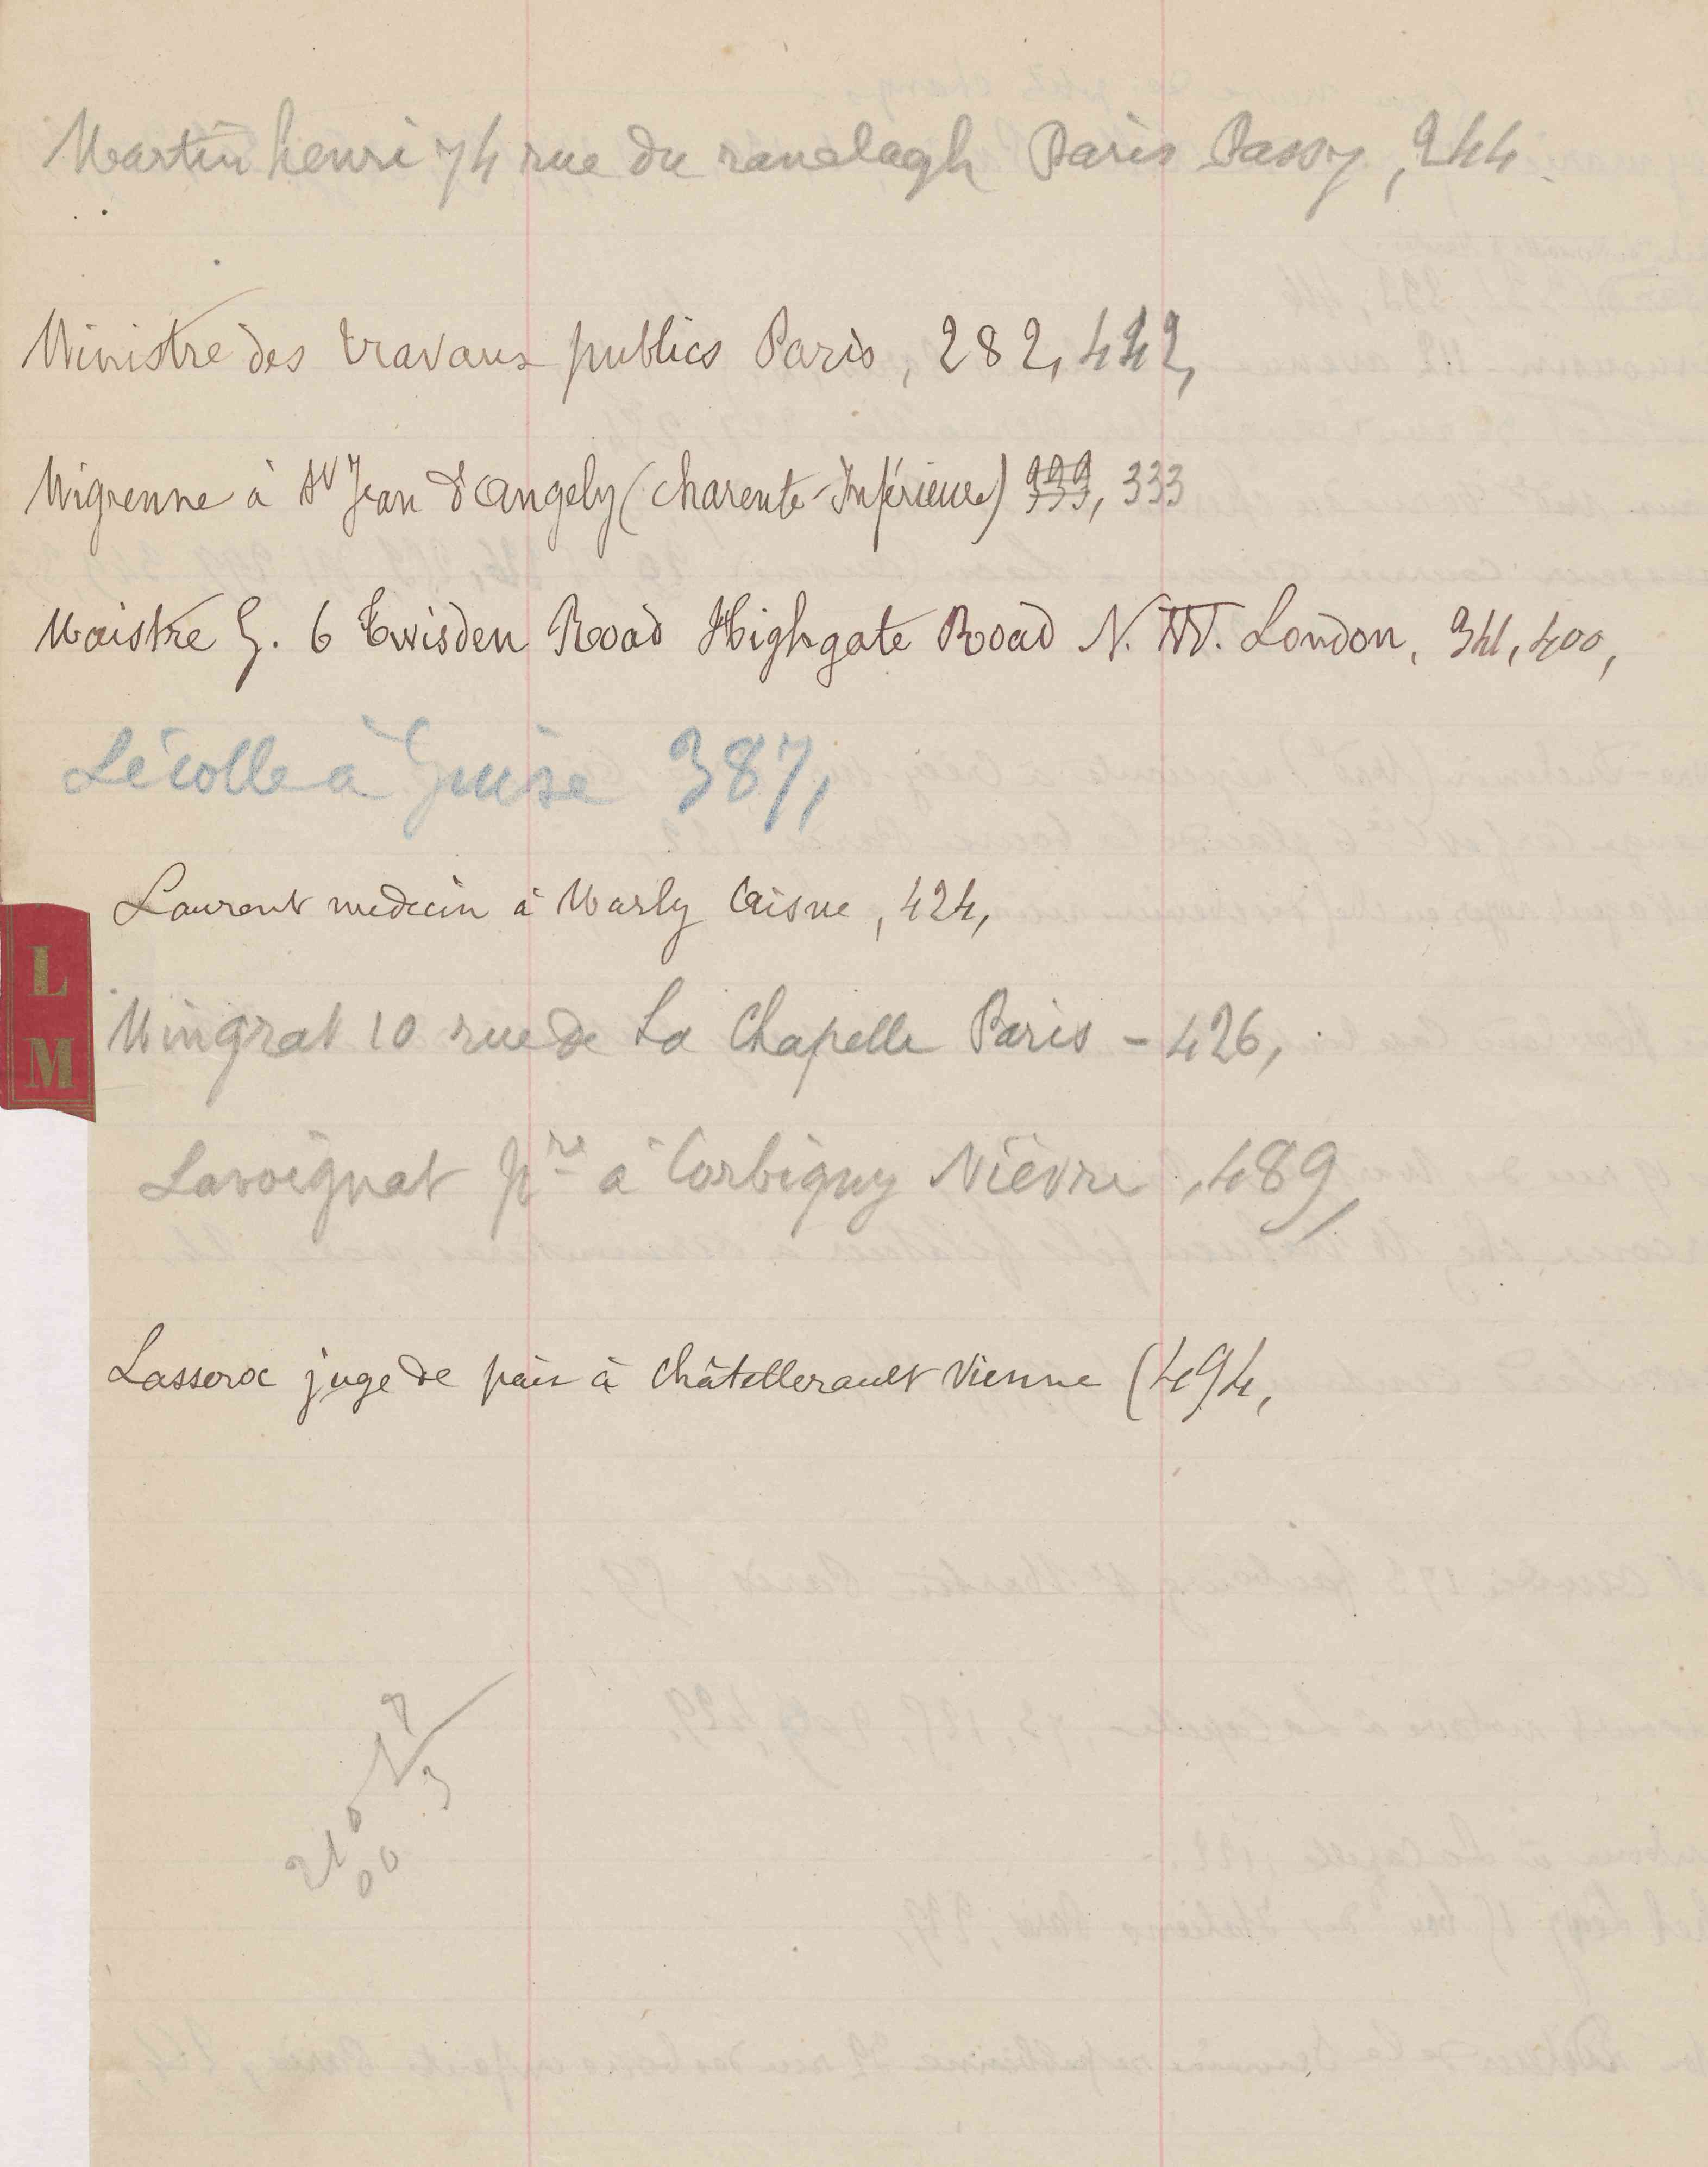 Martin henri 74 rue du ranelagh Paris Passy, 244.
Ministre des travaux publics Paris, 282, 442,
Migrenne à St Jean d'Angely (Charente-Inférieure) 333, 333
Maistre G. 6 Twisden Road Highgate Road N.W. London, 341, 400,
Lécolle à Guise 387,
Laurent medecin à Marly Aisne, 424,
L
M
Mingrat 10 rue de La Chapelle Paris - 426,
Lavoignat pre à Corbigny Nièvre, 489,
Lasseroc juge de paix à Châtellerault Vienne (494,